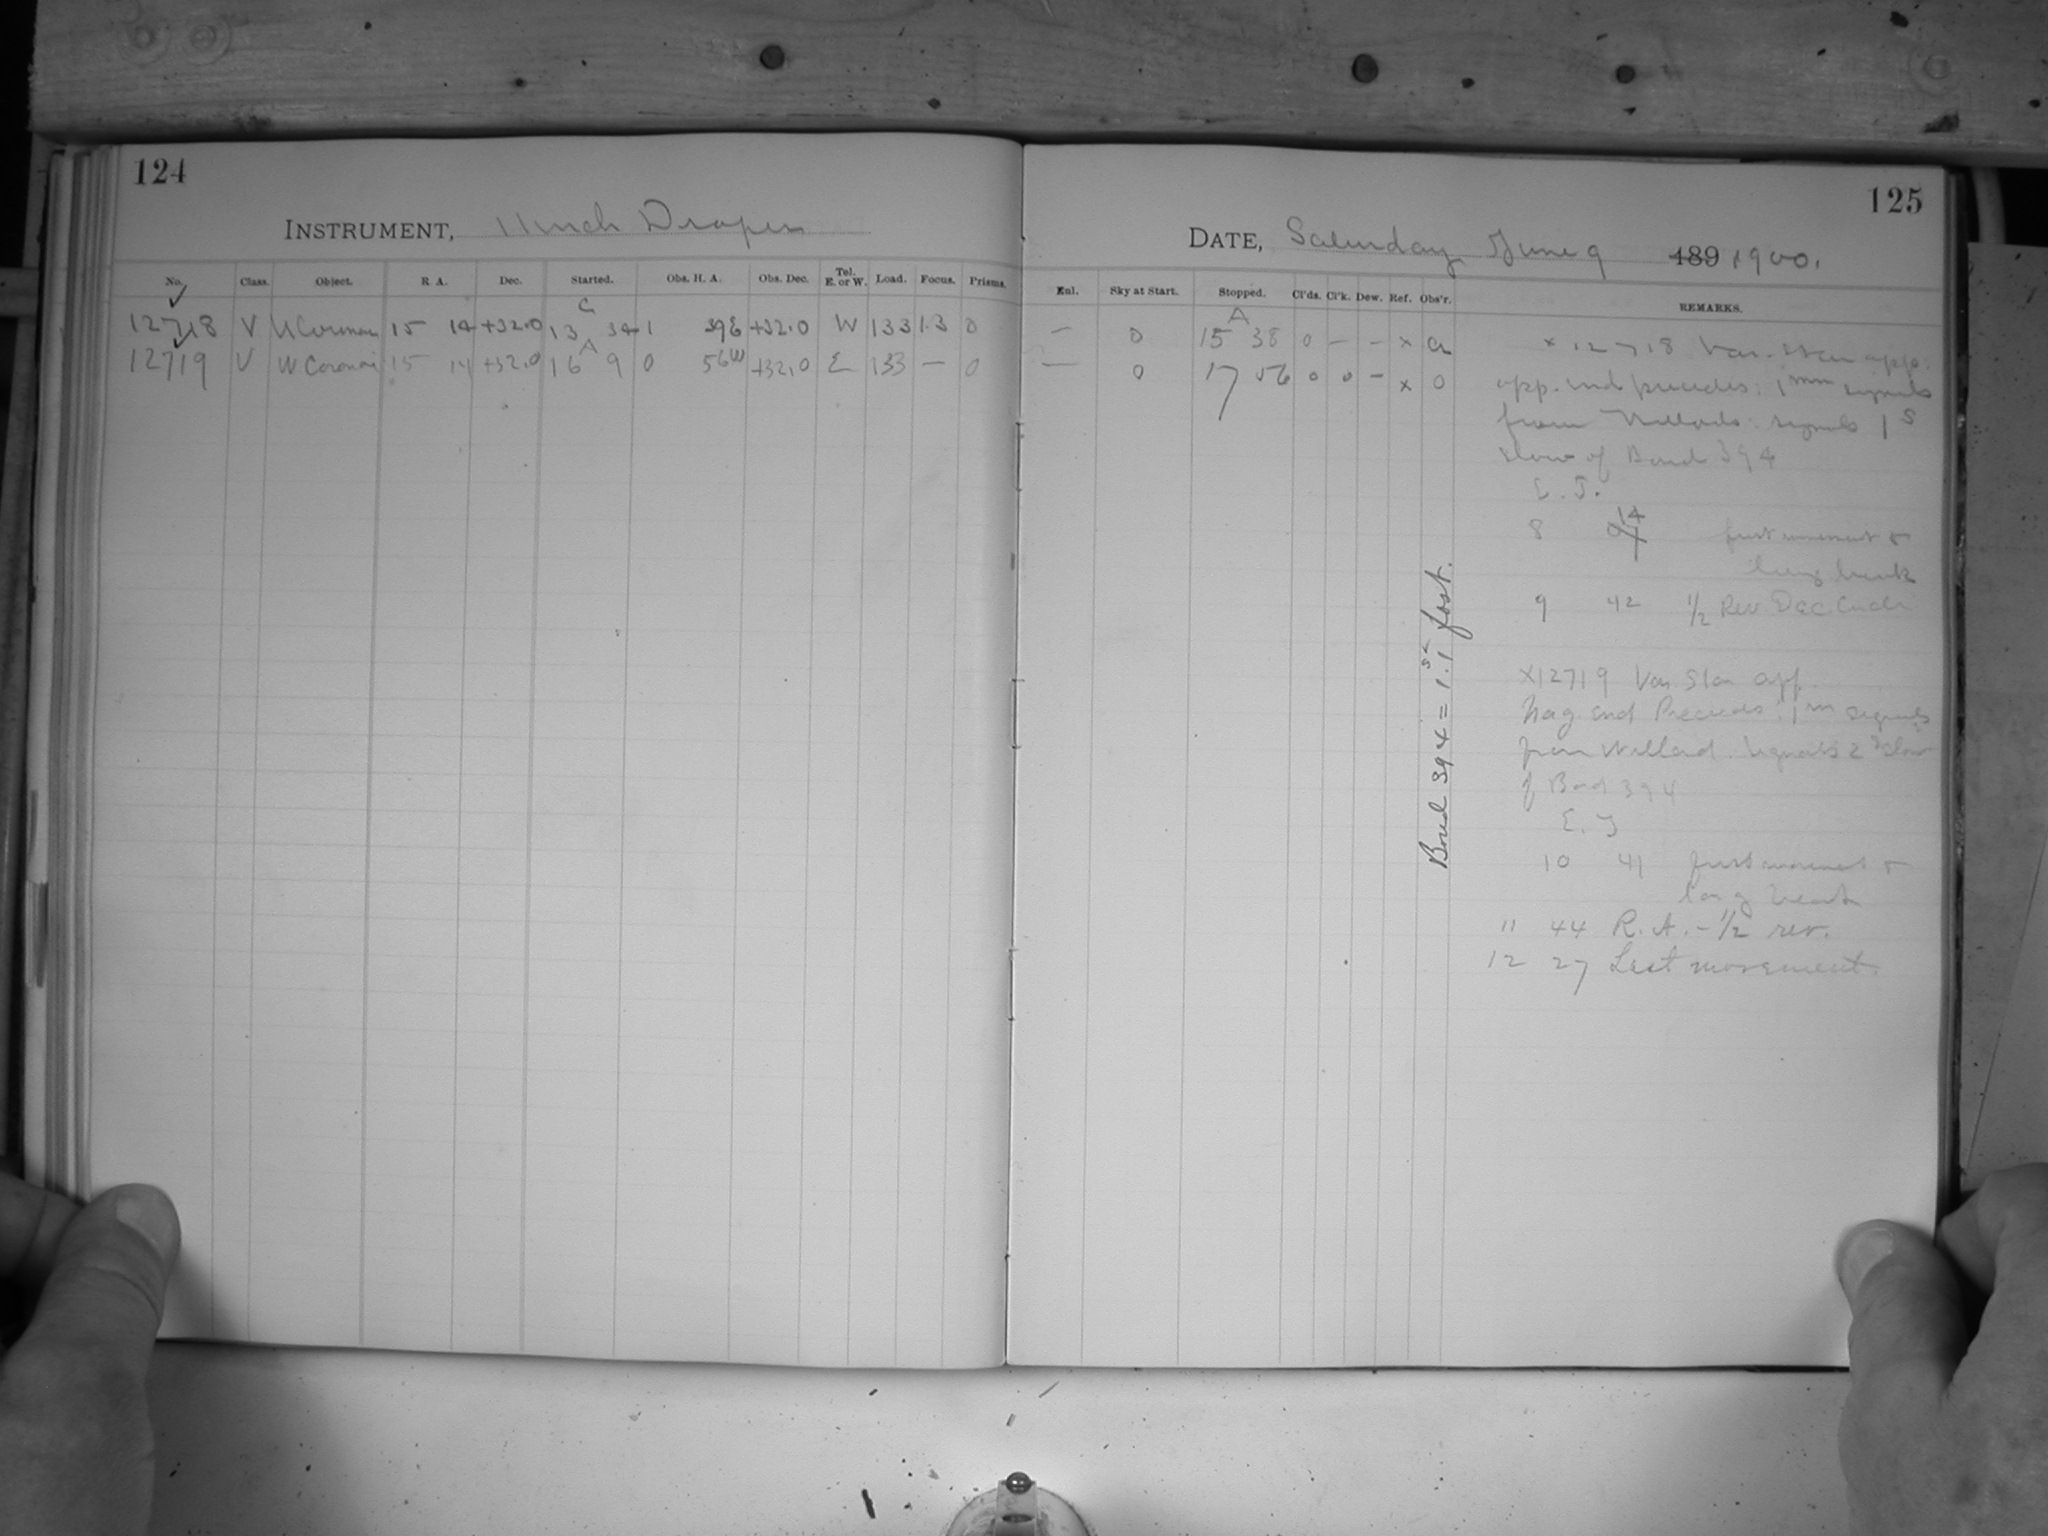 124
INSTRUMENT, 11 inch Draper
No. Class. Object. R. A. Dec. Started. Obs. H. A. Obs. Dec. Tel. E. or W. Load. Focus. Prisms.
12718 V U Coronae 15 14 +32.0 13 34 1 39 E +32.0 W 133 1.3 0
12719 V U Coronae 15 14 +32.0 16 A 9 0 56 W +32.0 E 133 — 0
125
DATE, Saturday June 9 189 1900.
Enl. Sky at Start. Stopped. Cl'ds. Cl'k. Dew. Ref. Obs'r. REMARKS.
— 0 15 A 38 0 — — x a
— 0 17 56 0 0 — x 0
x 12718 Var. star app.
app. end precedes: 1 mm signals
from Willard: signals 1 s
slow of Bond 394
E. T.
8 14 first movement &
long break
9 42 1/2 Rev Dec Circle
x12719 Var Star app.
Neg. end Precedes: 1 m signals
from Willard. signals 2 s slow
of Bond 394
E. T
10 41 first movement &
long break
11 44 R. A. - 1/2 rev.
12 27 Last movement.
Bond 394 = 1.1 fast.